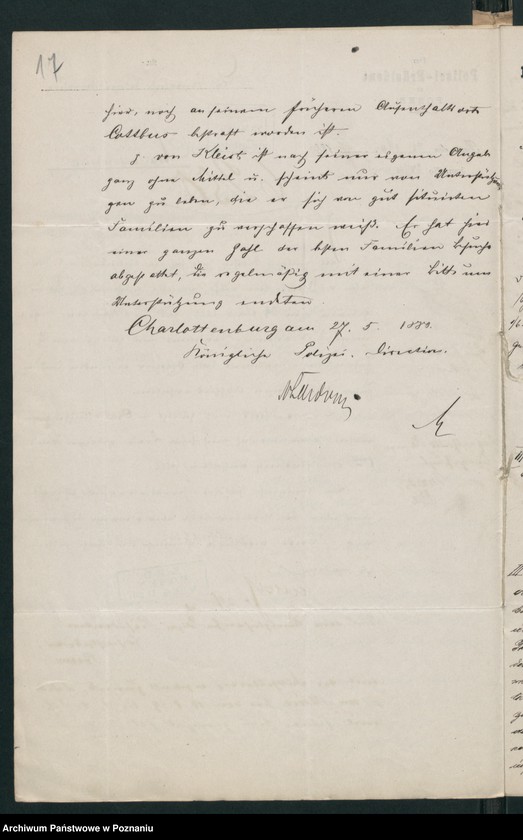 17
hier, noch an seinem früheren Aufenthaltsorte
Cottbus bestraft worden ist.
von Kleist ist nach seiner eigenen Angabe
ganz ohne Mittel u. scheint nur von Unterstützun-
gen zu leben, die er sich von gut situirten
Familien zu verschaffen weiß. Er hat hier
einer ganzen Zahl der besten Familien Besuche
abgestattet, die regelmäßig mit einer Bitte um
Unterstützung endeten.
Charlottenburg am 27. 5. 188
Königliche Polizei-Direction.
Archiwum Państwowe w Poznaniu